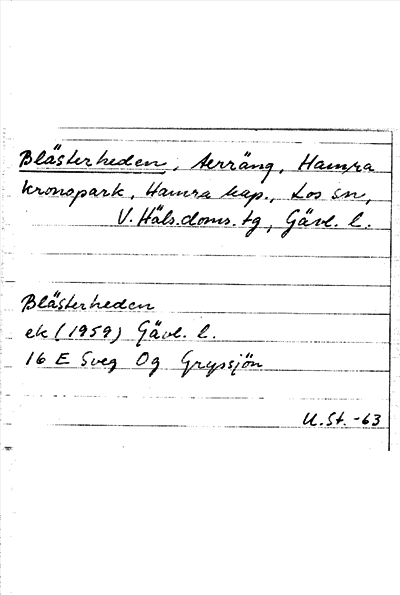 Blästerheden, terräng, Hamra
kronopark, Hamra kap., Los sn,
V. Häls. doms. tg, Gävl. l.
Blästerheden
ek (1959) Gävl. l.
16 E Sveg 0g Gryssjön
U.St. -63